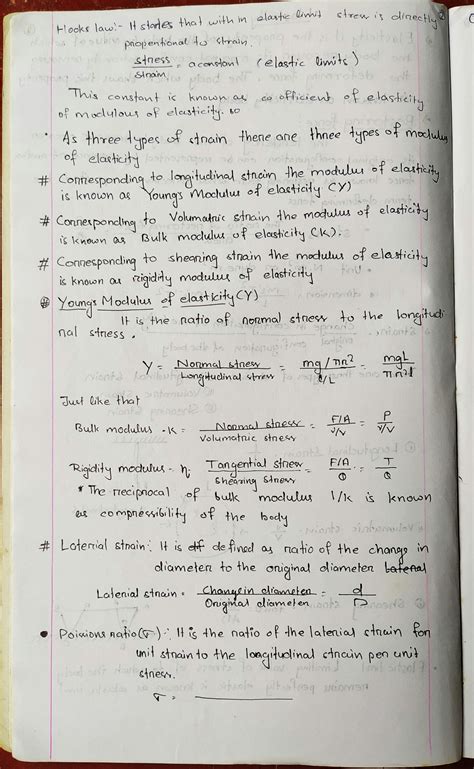 Hooks law:- It states that with in elastic limit stress is directly
propentional to strain.
stress/strain = a constant (elastic limits)
This constant is known as co officient of elasticity
of modulous of elasticity. so
• As three types of strain there are three types of modulus
of elasticity
# Corresponding to longitudinal strain the modulus of elasticity
is known as Young's Modulus of elasticity (Y)
# Corresponding to Volumatric strain the modulus of elasticity
is known as Bulk modulus of elasticity (K).
# Corresponding to shearing strain the modulus of elasticity
is known as rigidity modulus of elasticity
Youngs Modulus of elasticity (Y)
It is the ratio of normal stress to the longitudi
nal stress.
Y = Normal stress/Longitudinal stress = mg/πr²/l/L = mgL/πr²l
Just like that
Bulk modulus - K = Normal stress/Volumatric stress = F/A/v/V = P/v/V
Rigidity modulus - η = Tangential stress/Shearing stress = F/A/θ = T/θ
* The reciprocal of bulk modulus 1/k is known
as compressibility of the body
# Laterial strain: It is defined as ratio of the change in
diameter to the original diameter Lateral
Laterial strain = Change in diameter/Original diameter = d/D
• Poissions ratio(σ): It is the ratio of the laterial strain for
unit strain to the longitudinal strain per unit
stress.
σ =